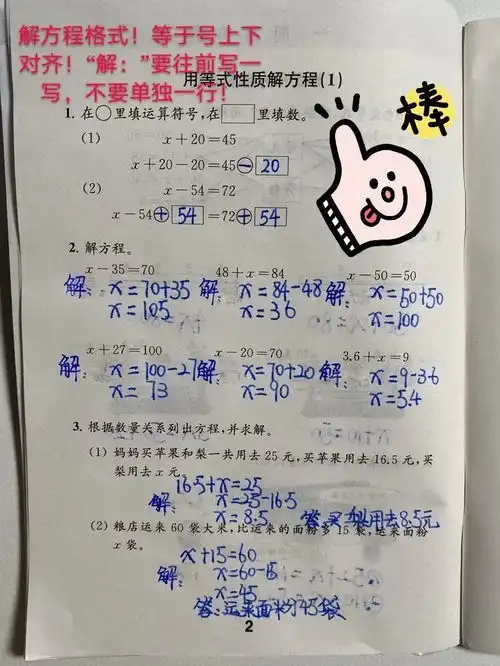 解方程格式！等于号上下
对齐！“解：”要往前写一
写，不要单独一行！
棒
用等式性质解方程(1)
1. 在○里填运算符号,在□里填数。
(1) x+20=45
x+20-20=45⊖20
(2) x-54=72
x-54⊕54=72⊕54
2. 解方程。
x-35=70 48+x=84 x-50=50
解: x=70+35 解: x=84-48 解: x=50+50
x=105 x=36 x=100
x+27=100 x-20=70 3.6+x=9
解: x=100-27 解: x=70+20 解: x=9-3.6
x=73 x=90 x=5.4
3. 根据数量关系列出方程,并求解。
(1) 妈妈买苹果和梨一共用去 25 元,买苹果用去 16.5 元,买
梨用去 x 元。
16.5+x=25
解: x=25-16.5
x=8.5 答:买梨用去8.5元
(2) 粮店运来 60 袋大米,比运来的面粉多 15 袋,运来面粉
x 袋。
x+15=60
解: x=60-15
x=45
答:运来面粉45袋
2